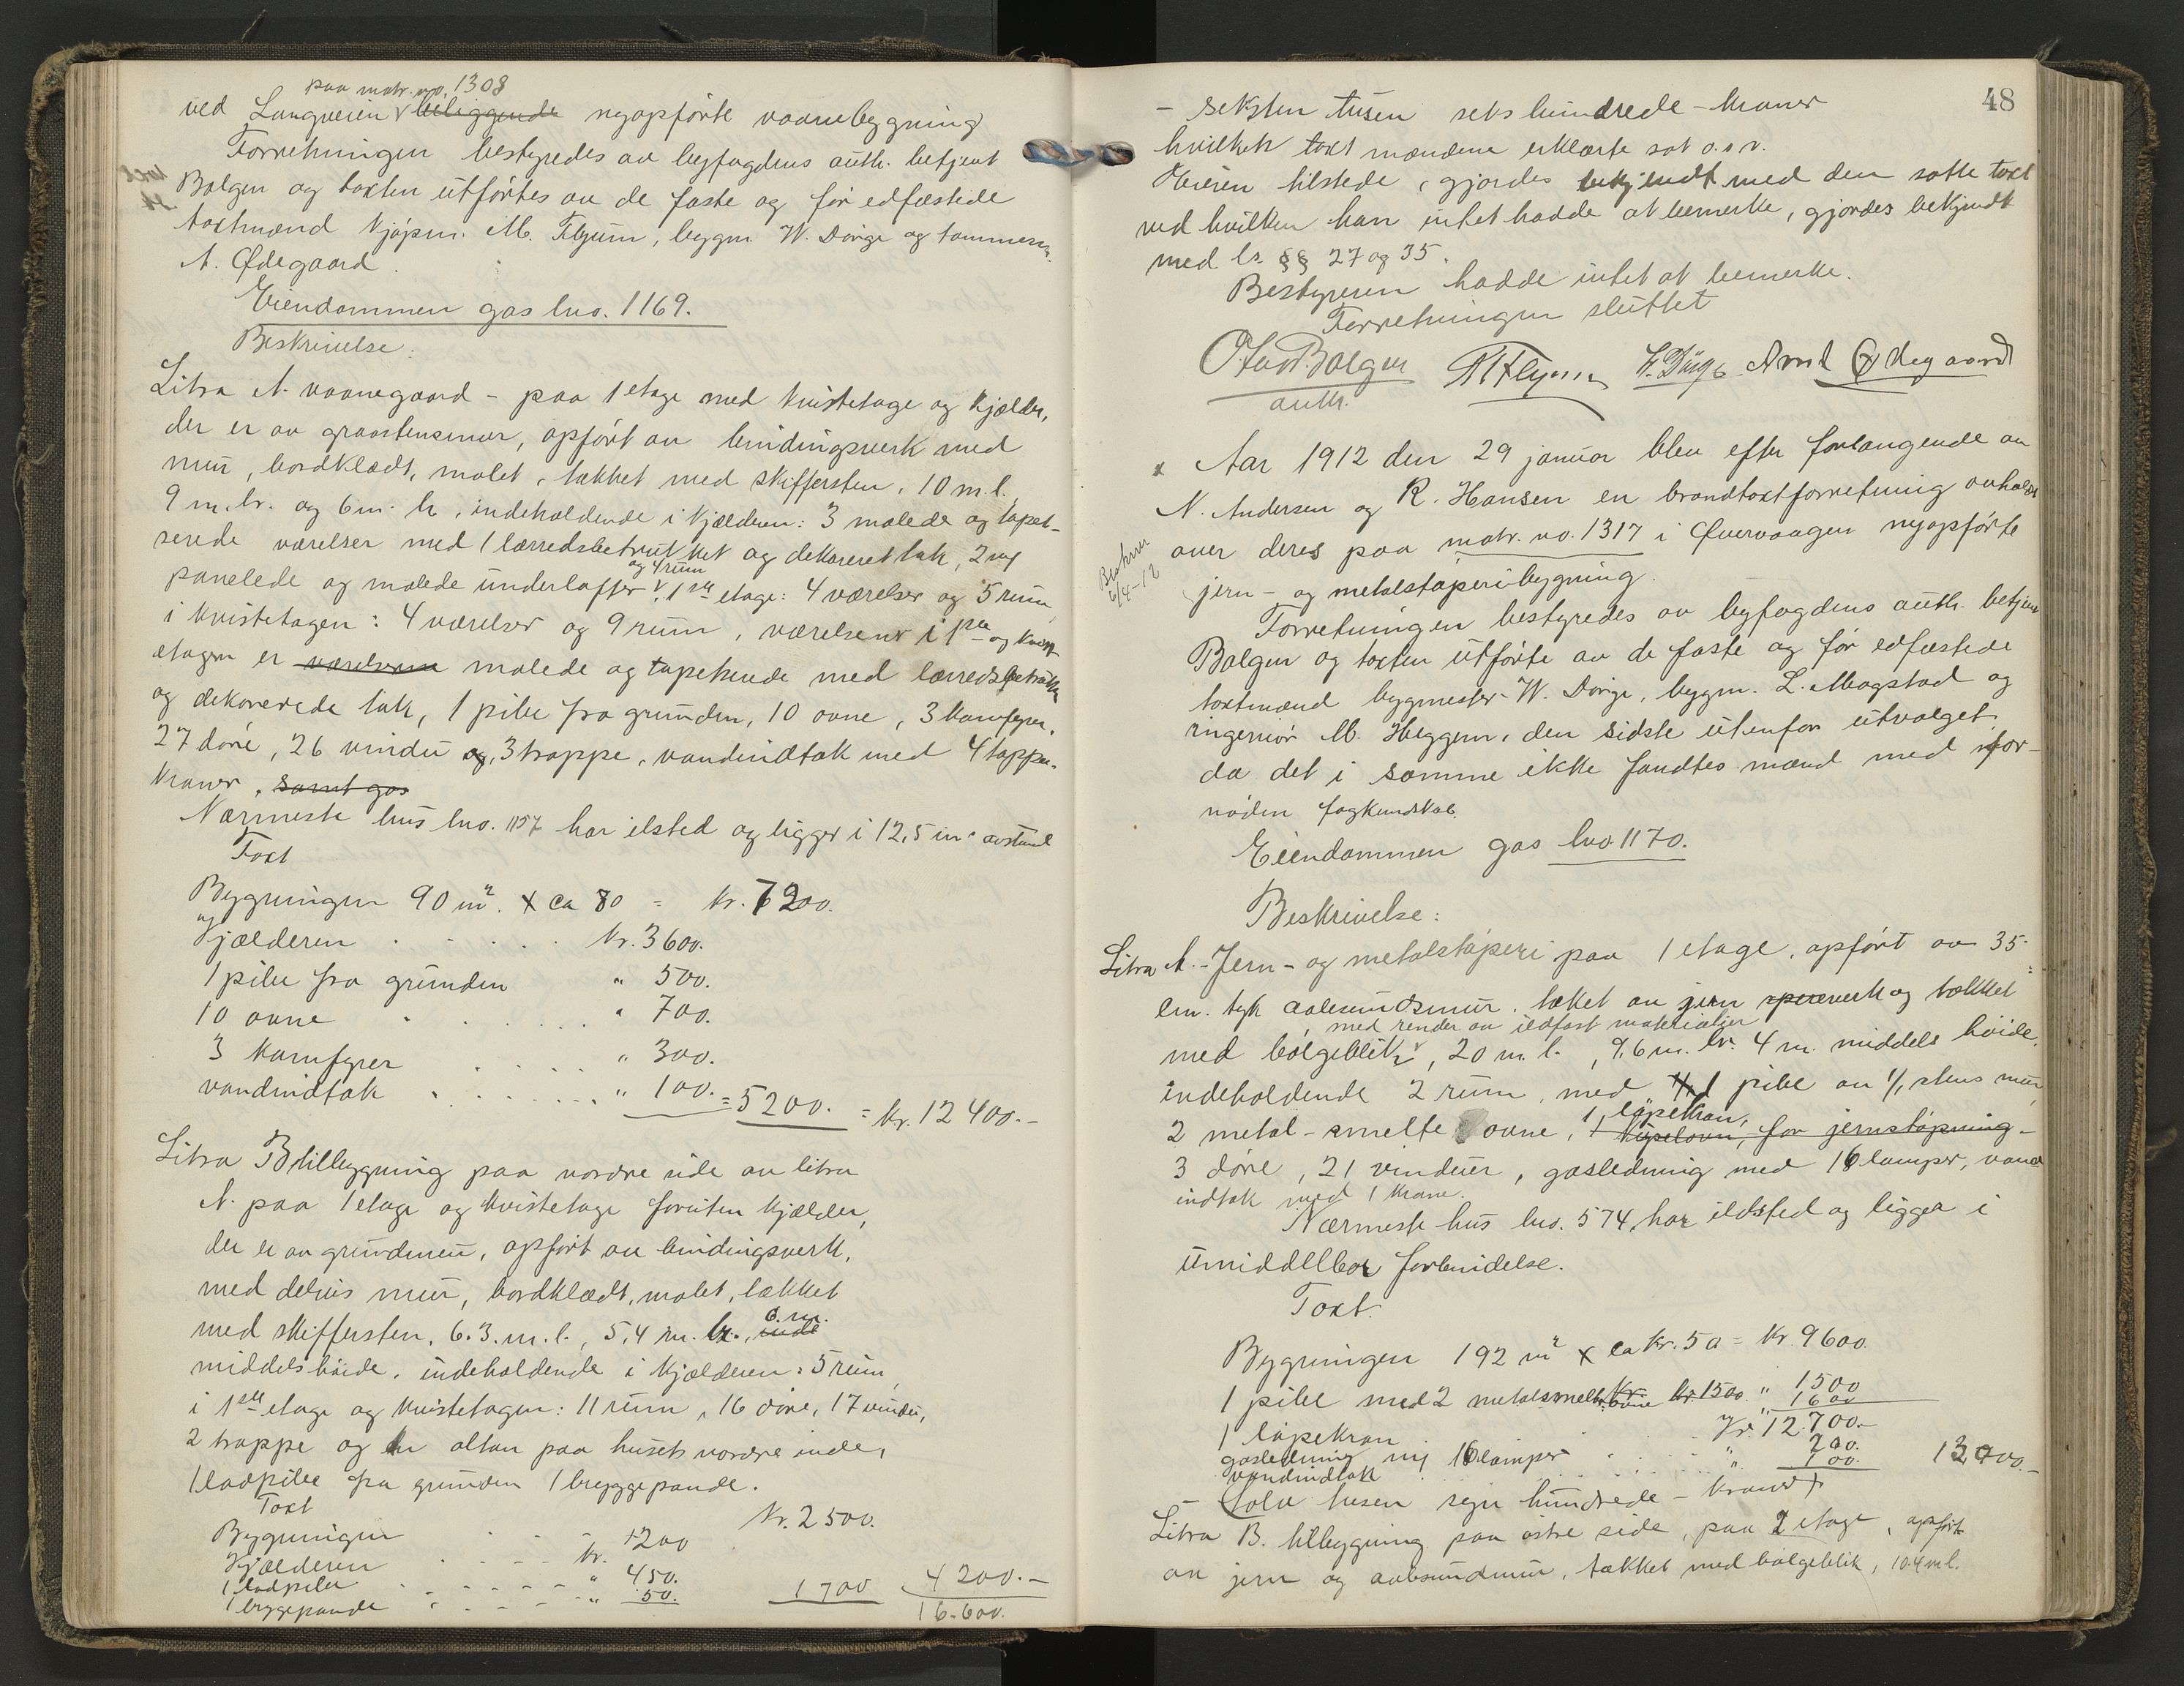 paa matr. no. 1308
ved Langveien beliggende nyopførte vaanebygning
Forretningen bestyredes av byfogdens auth. betjent
Bolgen og taxten utførtes av de faste og før edfæstede
taxtmænd kjøpm. M. Flyum, bygm. W. Dørge og tømmerm.
A. Ødegaard.
Eiendommen gas bno. 1169.
Beskrivelse:
Litra A. vaanegaard - paa 1 etage med kvistetage og kjælder,
der er av graastensmur, opført av bindingsverk med
mur, bordklædt, malet, tækket med skiffersten, 10 m. l.
9 m. br. og 6 m. h., indeholdende i kjælderen: 3 malede og tapet-
serede værelser med 1 lærredsbetrukket og dekoreret tak, 2 m/
panelede og malede underlofter og 4 rum, 1ste etage: 4 værelser og 5 rum,
i kvistetagen: 4 værelser og 9 rum, værelserne i 1ste og kvist-
etagen er værelserne malede og tapetserede med lærredsbetrukke
og dekorerede tak, 1 pibe fra grunden, 10 ovne, 3 komfyrer,
27 døre, 26 vindu og 3 trappe, vandindtak med 4 tappe-
kraner, samt gas
Nærmeste hus bno. 1157 har ilsted og ligger i 12,5 m. avstand
Taxt
Bygningen 90 m². x ca 80 = kr. 7200.
Kjælderen . . . . . kr. 3600.
1 pibe fra grunden " 500.
10 ovne . . . . " 700.
3 komfyrer . . . . " 300.
vandindtak . . . . . " 100. = 5200. = kr. 12400.-
Litra B tilbygning paa nordre side av litra
A. paa 1 etage og kvistetage foruten kjælder,
der er av grundmur, opført av bindingsverk,
med delvis mur, bordklædt, malet, tækket
med skiffersten, 6.3. m. l., 5,4 m. br., inde 6. m.
middelshøide, indeholdende i kjælderen: 5 rum,
i 1ste etage og kvistetagen: 11 rum, 16 døre, 17 vindu,
2 trappe og en altan paa husets nordre ende,
1 ladpibe fra grunden 1 bryggepande.
Taxt
Bygningen . . . . kr. 2500.
Kjælderen . . . kr. 1200
1 ladpibe . . . . " 450.
1 bryggepande . . . . " 50. 1700 4200.-
16.600.
48
- seksten tusen seks hundrede - kroner
hvilken taxt mændene erklærte sat o.s.v.
Eieren tilstede, gjordes bekjendt med den satte taxt
ved hvilken han intet hadde at bemerke, gjordes bekjendt
med ls. §§ 27 og 35.
Bestyreren hadde intet at bemerke.
Forretningen sluttet
Olav Bolgen M Flyum W. Dørge Arnt Ødegaard
auth.
x Aar 1912 den 29 januar blev efter forlangende av
N. Andersen og R. Hansen en brandtaxtforretning avholdt
over deres paa matr. no. 1317 i Qvervaagen nyopførte
jern- og metalstøperibygning.
Beskrev
6/4-12
Forretningen bestyredes av byfogdens auth. betjent
Bolgen og taxten utførte av de faste og før edfæstede
taxtmænd bygmester W. Dørge, bygm. L. Magstad og
ingeniør M. Heggem, den sidste utenfor utvalget
da det i samme ikke fandtes mænd med for-
nøden fagkundskab.
Eiendommen gas bno. 1170.
Beskrivelse:
Litra A. - Jern- og metalstøperi paa 1 etage, opført av 35
cm. tyk aalesundsmur. taket av jern sperverk og tækket
med render av ildfast materialier
med bølgeblik, 20 m. l., 9,6 m. br. 4 m. middels høide,
indeholdende 2 rum, med 1 pibe av 1/1 stens mur
1 løpekran,
2 metal-smelte ovne, 1 kupelovn, for jernstøpning -
3 døre, 21 vinduer, gasledning med 16 lamper, vand
indtak med 1 krane.
Nærmeste hus bno. 574, har ildsted og ligger i
umiddelbar forbindelse.
Taxt.
Bygningen 192 m² x ca kr. 50 = kr. 9600.
1 pibe med 2 metalsmelteovne kr. 1500 " 1500
1 løpekran 1600
kr. 12.700.-
gasledning m/ 16 lamper . . . . 200.
vandindtak . . . . " 100. 13000.-
- (tolv tusen syv hundrede - kroner)
Litra B. tilbygning paa østre side, paa 2 etage, opført
av jern og aalesundmur, tækket med bølgeblik, 10.4 m l.